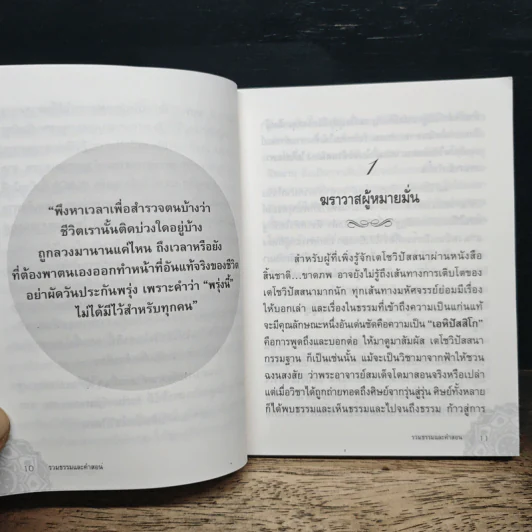 “พึงหาเวลาเพื่อสำรวจตนบ้างว่า
ชีวิตเรานั้นติดบ่วงใดอยู่บ้าง
ถูกลวงมานานแค่ไหน ถึงเวลาหรือยัง
ที่ต้องพาตนเองออกทำหน้าที่อันแท้จริงของชีวิต
อย่าผัดวันประกันพรุ่ง เพราะคำว่า “พรุ่งนี้”
ไม่ได้มีไว้สำหรับทุกคน”
10 รวมธรรมและคำสอน
1
ฆราวาสผู้หมายมั่น
สำหรับผู้ที่เพิ่งรู้จักเตโชวิปัสสนาผ่านหนังสือ
สิ้นชาติ...ขาดภพ อาจยังไม่รู้ถึงเส้นทางการเติบโตของ
เตโชวิปัสสนามากนัก ทุกเส้นทางมหัศจรรย์ย่อมมีเรื่อง
ให้บอกเล่า และเรื่องในธรรมที่เข้าถึงความเป็นแก่นแท้
จะมีคุณลักษณะหนึ่งอันเด่นชัดคือความเป็น “เอหิปัสสิโก”
คือการพูดถึงและบอกต่อ ให้มาดูมาสัมผัส เตโชวิปัสสนา
กรรมฐาน ก็เป็นเช่นนั้น แม้จะเป็นวิชามาจากฟ้าให้ชวน
ฉงนสงสัย ว่าพระอาจารย์สมเด็จโตมาสอนจริงหรือเปล่า
แต่เมื่อวิชาได้ถูกถ่ายทอดถึงศิษย์จากรุ่นสู่รุ่น ศิษย์ทั้งหลาย
ก็ได้พบธรรมและเห็นธรรมและไปจนถึงธรรม ก้าวสู่การ
รวมธรรมและคำสอน 11